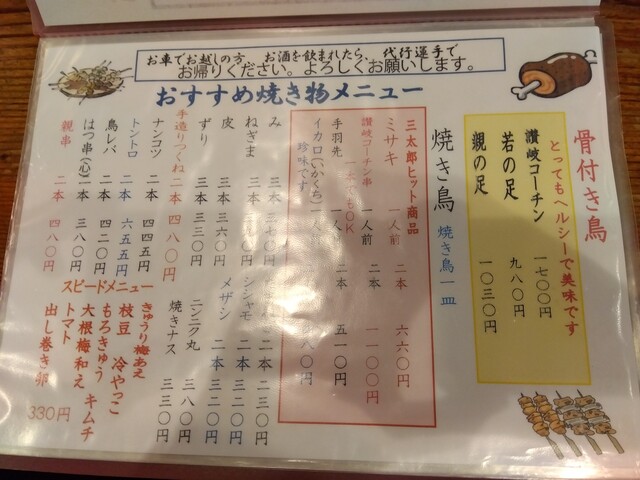 お車でお越しの方、お酒を飲まれたら、代行運手で
お帰りください。よろしくお願いします。
おすすめ焼き物メニュー
骨付き鳥
とってもヘルシーで美味です
讃岐コーチン 一七〇〇円
若の足 九八〇円
親の足 一〇三〇円
焼き鳥 焼き鳥一皿
三太郎ヒット商品
ミサキ 一人前 二本 六六〇円
讃岐コーチン串 一人前 二本 一一〇〇円
一本でもOK
手羽先 一人前 二本 五一〇円
イカロ(いかくち) 一人前
珍味です
み 三本
ねぎま 三本
皮 三本 三六〇円
ずり 三本 三三〇円
手造りつくね 二本 四八〇円
ナンコツ 二本 四四五円
トントロ 二本 六五五円
鳥レバ 二本 四二〇円
はつ串(心) 一本 三八〇円
親串 二本 四八〇円
二本 二三〇円
シシャモ 三本 三二〇円
メザシ 二本 三二〇円
ニンニク丸 三八〇円
焼きナス 三三〇円
スピードメニュー
きゅうり梅あえ
枝豆 冷やっこ
もろきゅう
大根梅和え キムチ
トマト
出し巻き卵
330円